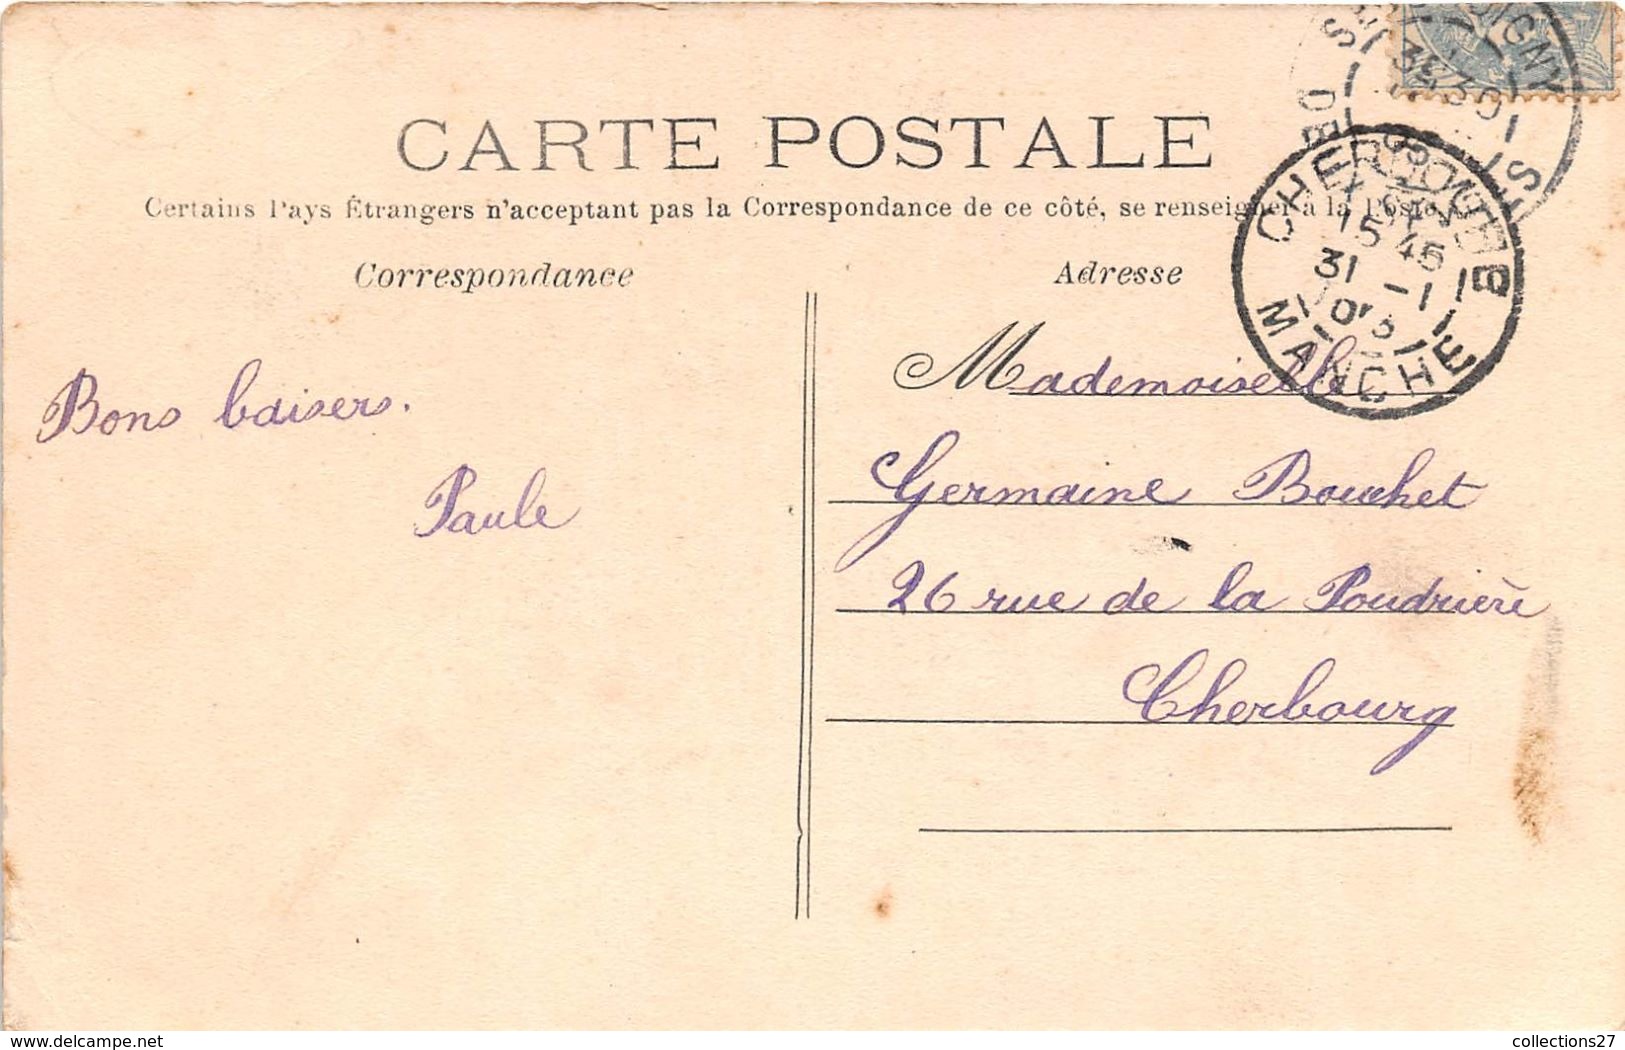 CARTE POSTALE
Certains Pays Étrangers n'acceptant pas la Correspondance de ce côté, se renseigner à la Poste.
Correspondance
Adresse
CHERBOURG
15 45
31 -1
MANCHE
Bons baisers.
Paule
Mademoiselle
Germaine Bouchet
26 rue de la Poudrière
Cherbourg
delcampe.net
collections27